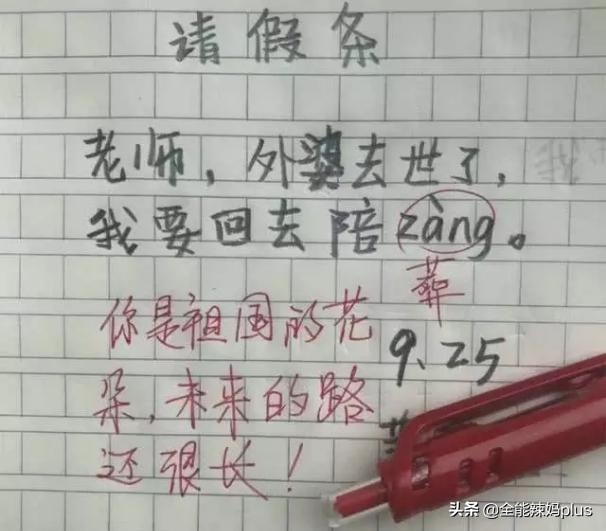 请假条
老师，外婆去世了，
我要回去陪zàng。
葬
你是祖国的花
9.25
朵，未来的路
还很长！
头条 @全能辣妈plus